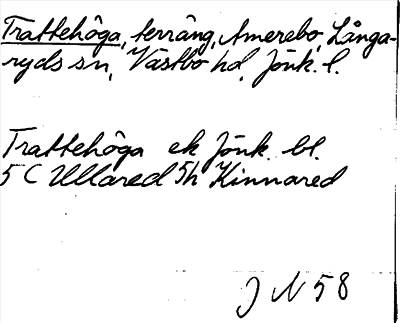 Trattehôga, terräng, Amerebo, Långa-
ryds sn, Västbo hd, Jönk. l.
Trattehôga ek Jönk. bl.
5 C Ullared 5h Kinnared
J N 58